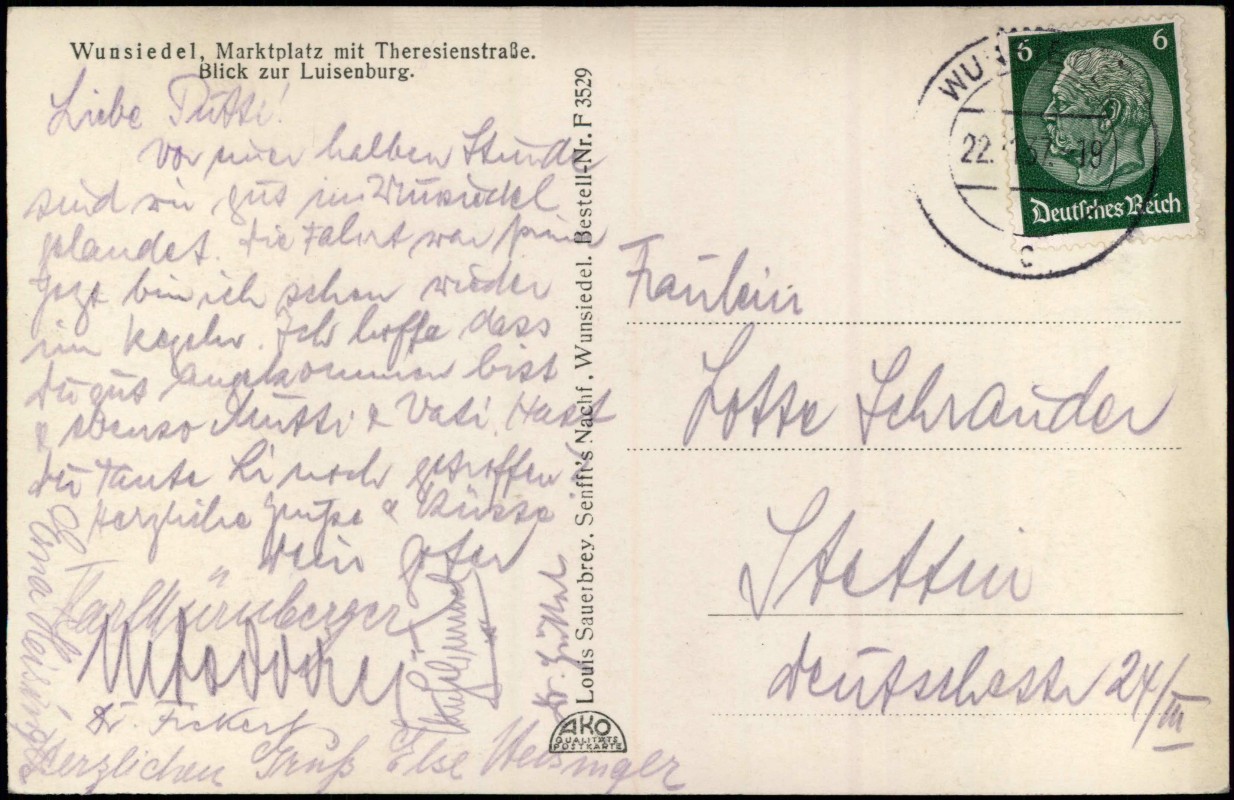 Wunsiedel, Marktplatz mit Theresienstraße.
Blick zur Luisenburg.
Liebe Putti!
Vor einer halben Stunde
sind wir gut in Wunsiedel
gelandet. Die Fahrt war prima
Jetzt bin ich schon wieder
im Kegeln. Ich hoffe dass
Du gut angekommen bist
& ebenso Mutti & Vati. Hast
Du Tante Li noch getroffen?
Herzliche Grüße & Küsse
Dein
Karl Nürnberger
Dr. Fickert
Herzlichen Gruß Else Weisinger
Louis Sauerbrey, Senfft's Nachf., Wunsiedel. Bestell-Nr. F 3529
AKO
QUALITÄTS
POSTKARTE
6 6
Deutsches Reich
WUN
22. 37. 19
c
Fräulein
Lotte Schrauder
Stettin
Deutschestr 24/III